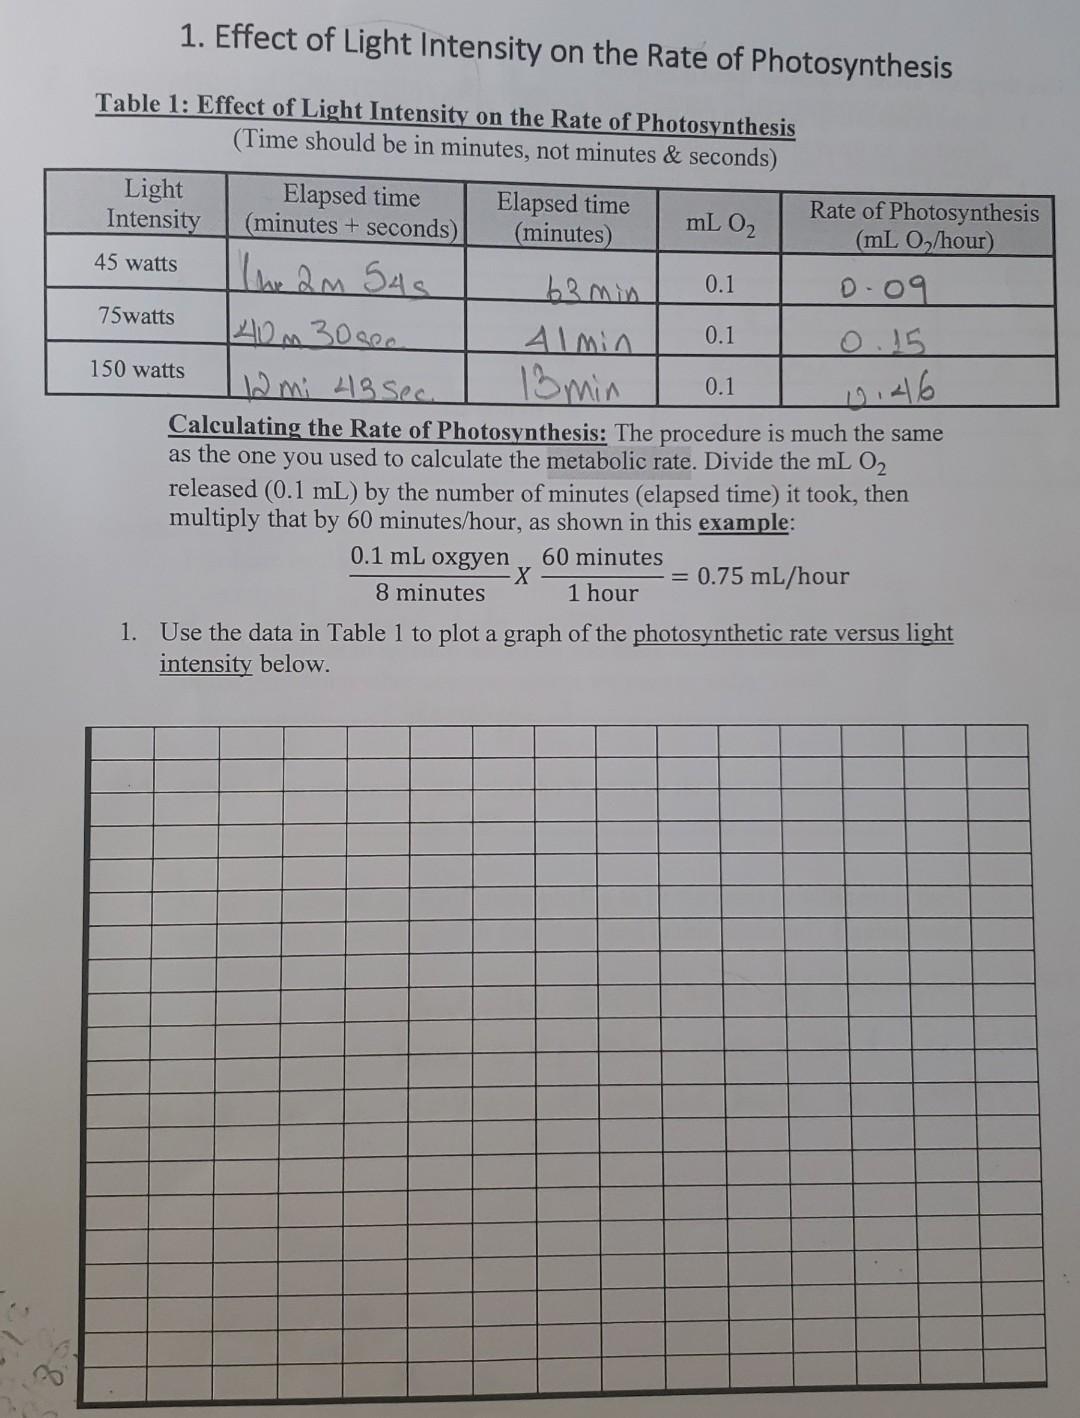 1. Effect of Light Intensity on the Rate of Photosynthesis
Table 1: Effect of Light Intensity on the Rate of Photosynthesis
(Time should be in minutes, not minutes & seconds)
Light Intensity
Elapsed time (minutes + seconds)
Elapsed time (minutes)
mL O₂
Rate of Photosynthesis (mL O₂/hour)
45 watts 1hr 2m 54s 63 min 0.1 0.09
75watts 40m 30sec 41min 0.1 0.15
150 watts 12mi 43sec 13min 0.1
Calculating the Rate of Photosynthesis: The procedure is much the same
as the one you used to calculate the metabolic rate. Divide the mL O₂
released (0.1 mL) by the number of minutes (elapsed time) it took, then
multiply that by 60 minutes/hour, as shown in this example:
0.1 mL oxgyen X 60 minutes = 0.75 mL/hour
8 minutes 1 hour
1. Use the data in Table 1 to plot a graph of the photosynthetic rate versus light
intensity below.